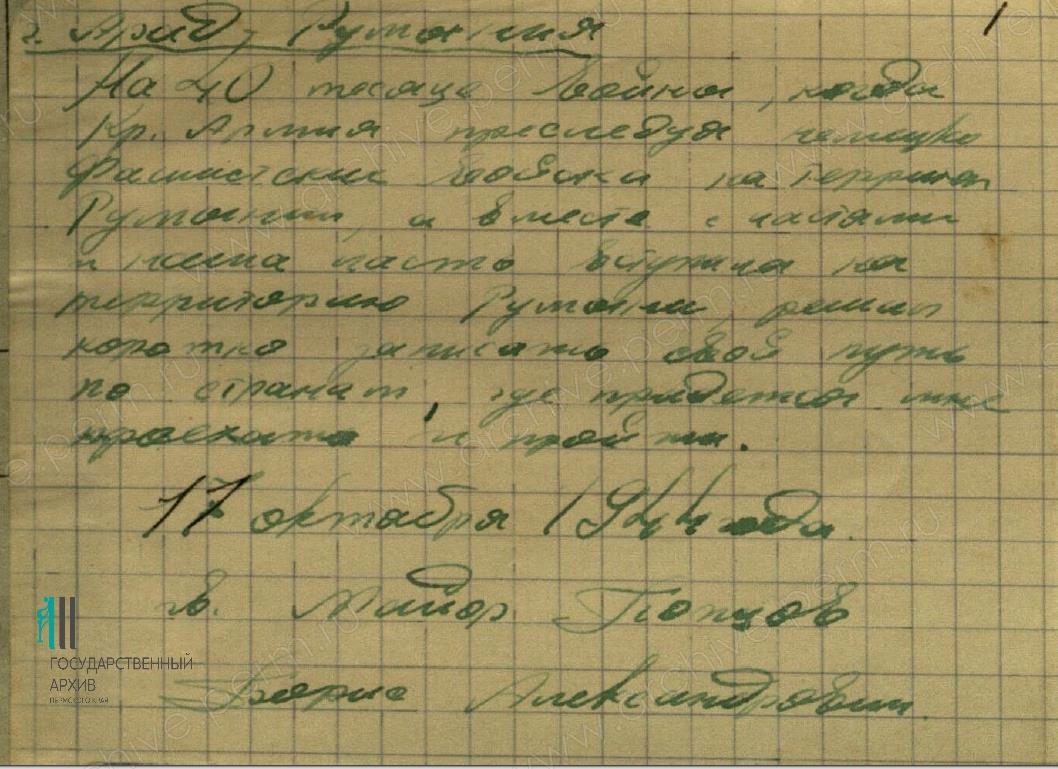 1
г. Арад, Румыния
На 40 месяце войны, когда
Кр. Армия преследуя немецко
фашистских войска на территор
Румынии, а вместе с частями
и наша часть вступила на
территорию Румынии, решил
коротко записать свой путь
по странам, где придется мне
проехать и пройти.
17 октября 1944 года.
гв. Майор Попцов
Борис Александрович.
ГОСУДАРСТВЕННЫЙ
АРХИВ
ПЕРМСКОГО КРАЯ
www.archive.perm.ru